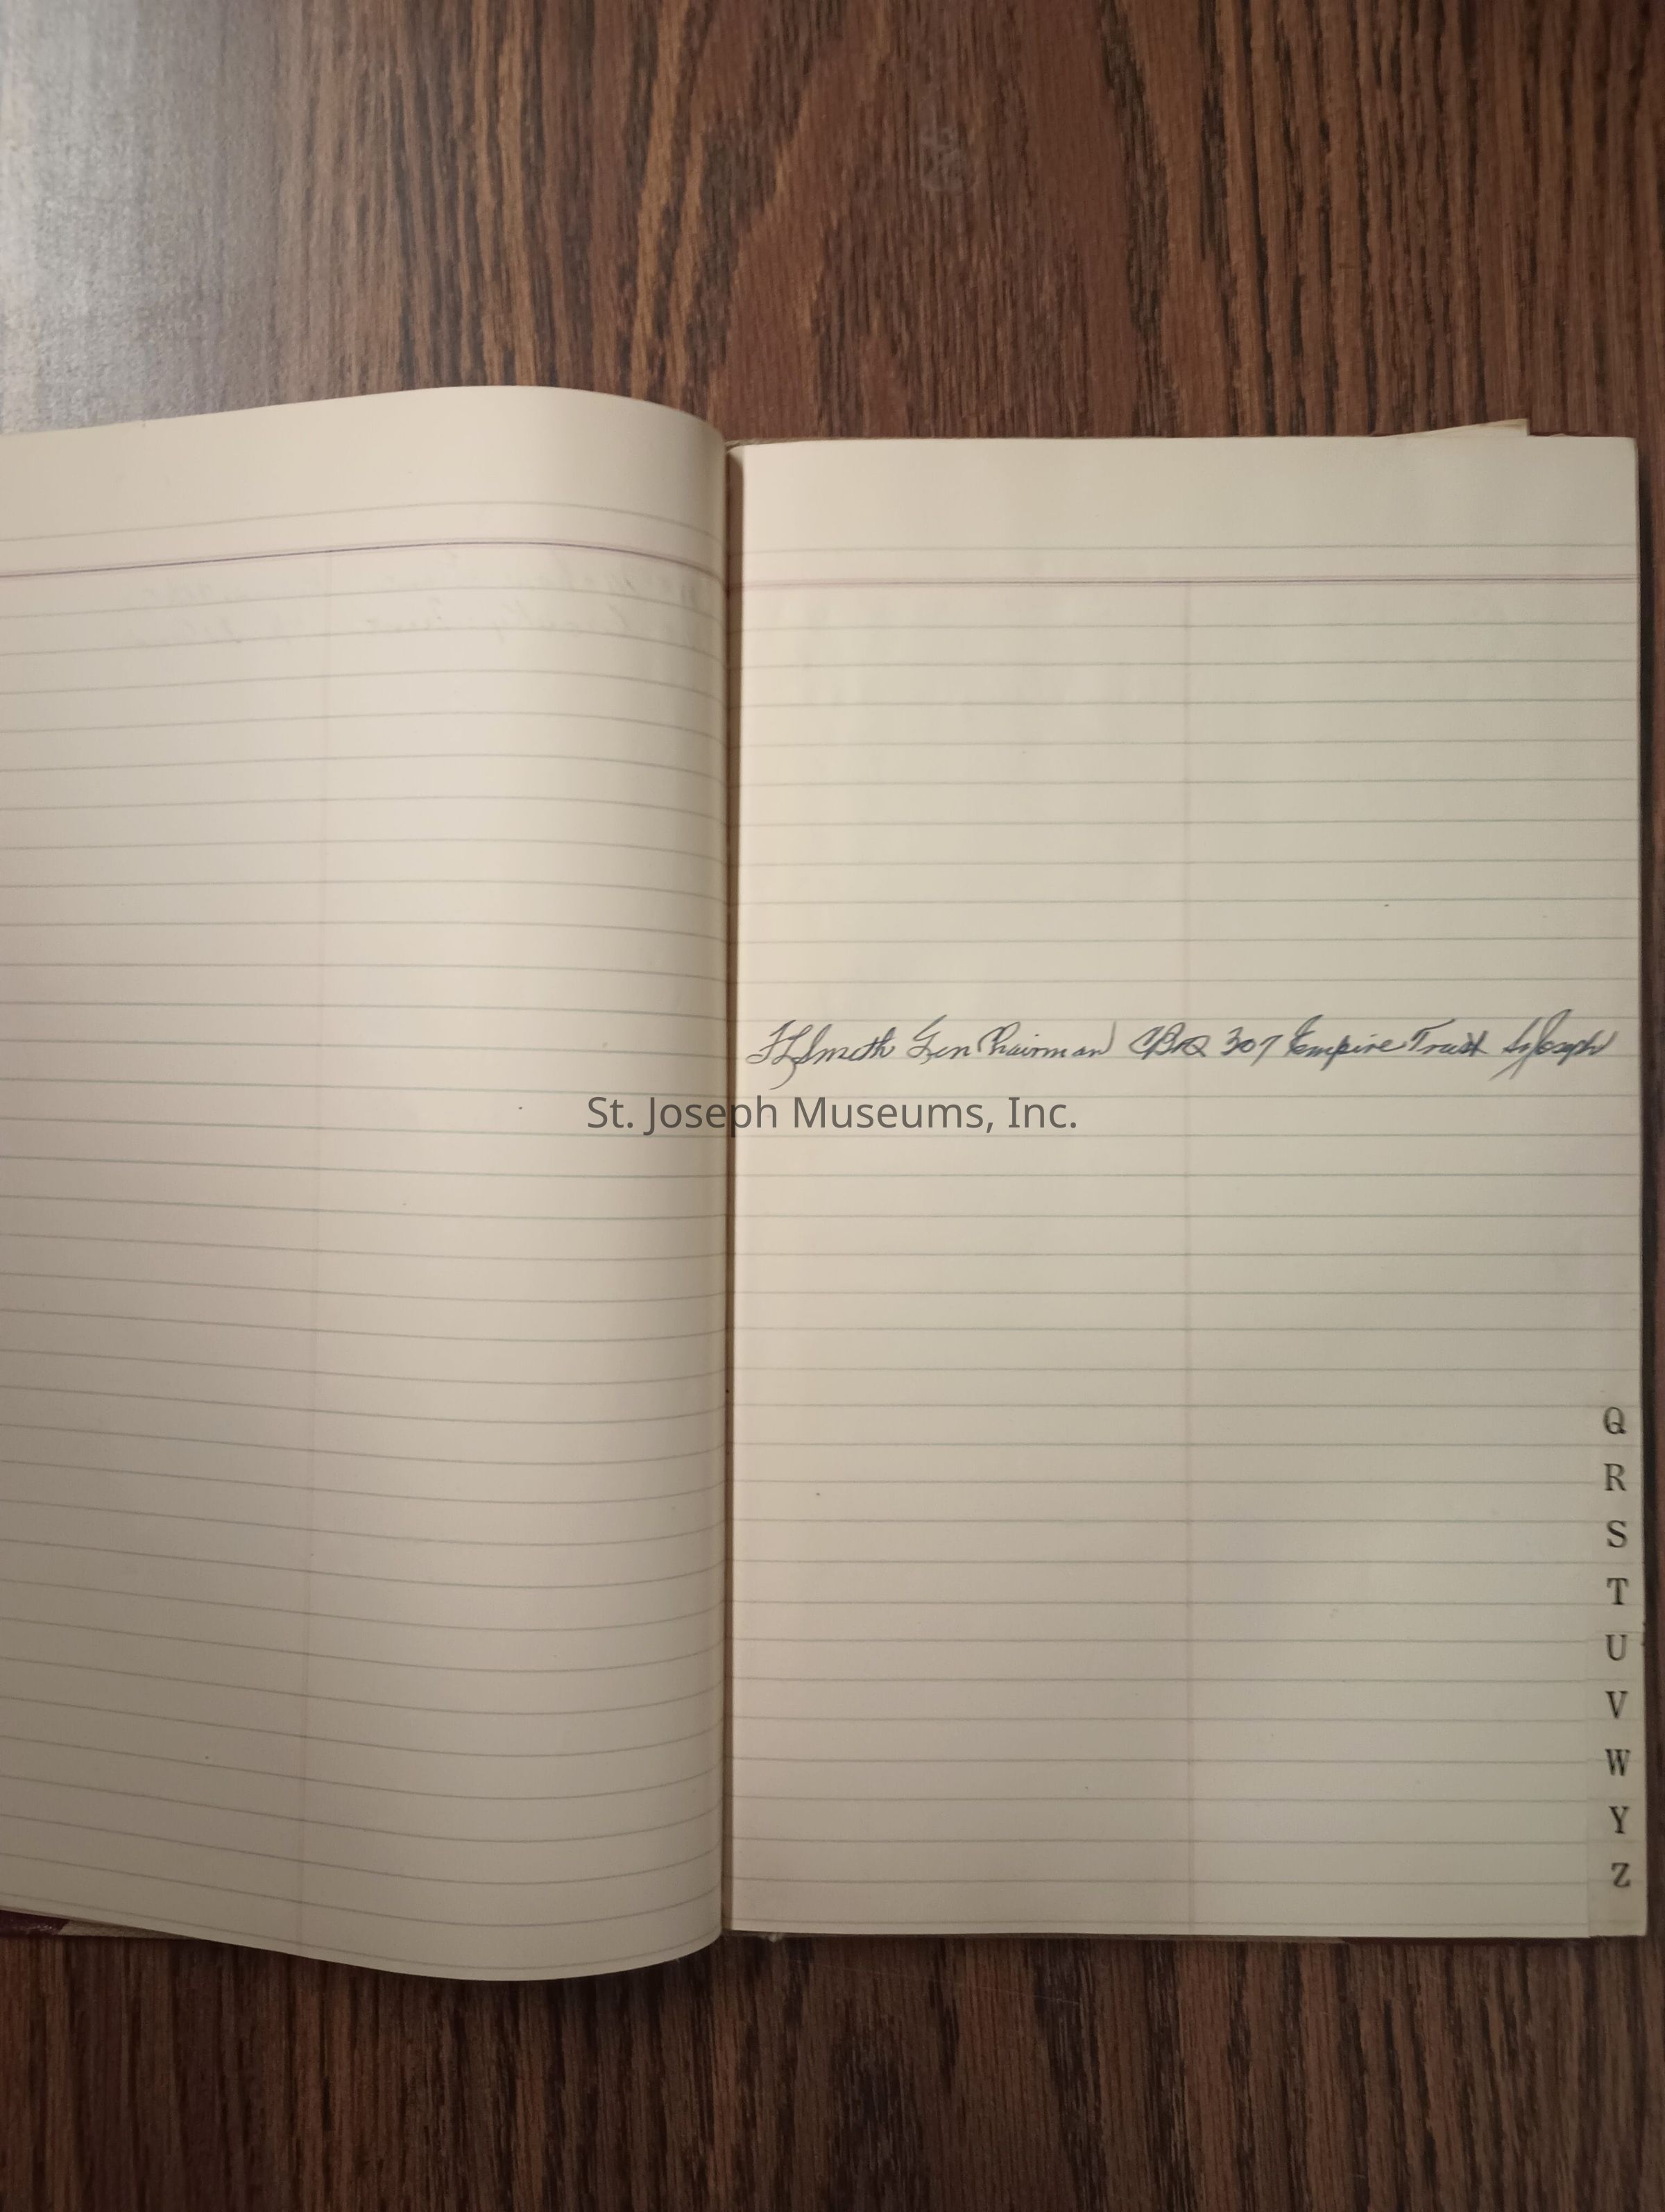 F L Smith Gen Chairman CB&Q 307 Empire Trust St Joseph
St. Joseph Museums, Inc.
Q
R
S
T
U
V
W
Y
Z